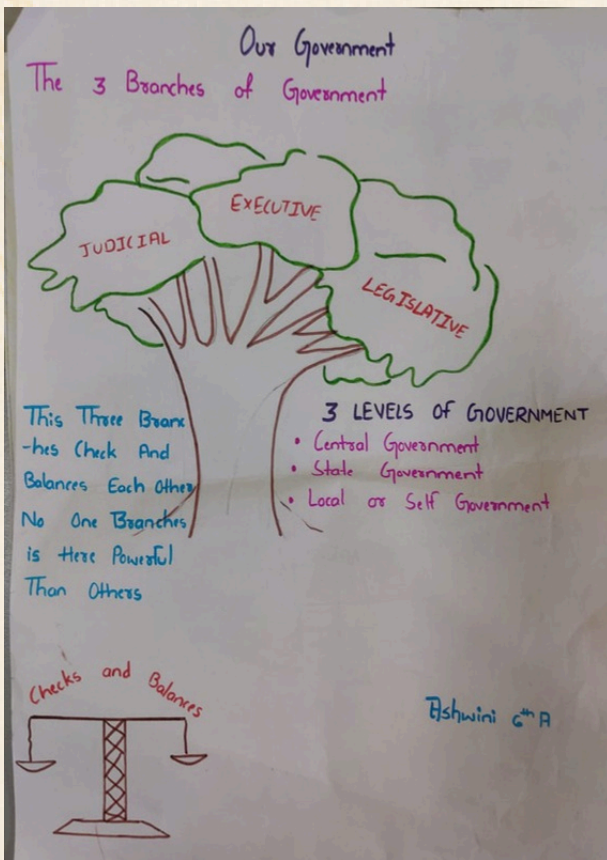 Our Government
The 3 Branches of Government
JUDICIAL
EXECUTIVE
LEGISLATIVE
This Three Branc
-hes Check And
Balances Each Other
No One Branches
is Here Powerful
Than Others
3 LEVELS OF GOVERNMENT
• Central Government
• State Government
• Local or Self Government
Checks and Balances
Ashwini 6th A